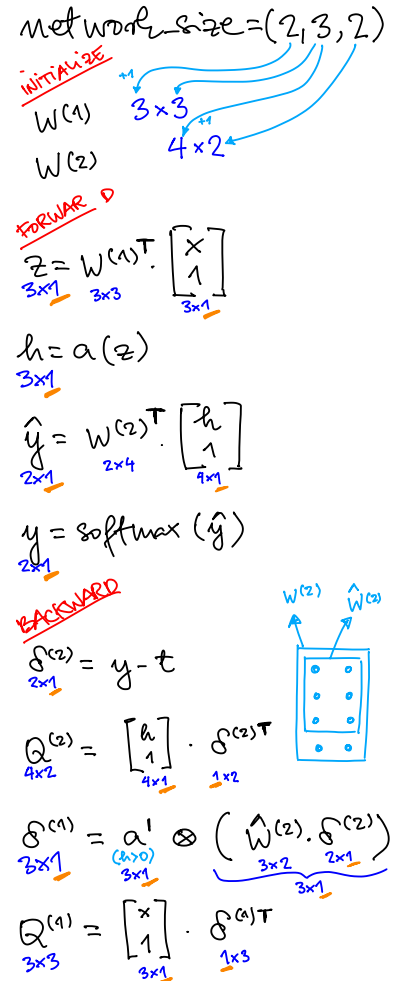 network_size=(2,3,2)
INITIALIZE
W(1) +1 3×3
W(2) +1 4×2
FORWARD
z = W(1)T · [x 1]
3×1 3×3 3×1
h = a(z)
3×1
ŷ = W(2)T · [h 1]
2×1 2×4 4×1
y = softmax(ŷ)
2×1
BACKWARD
W(2) Ŵ(2)
δ(2) = y - t
2×1
Q(2) = [h 1] · δ(2)T
4×2 4×1 1×2
δ(1) = a' ⊗ (Ŵ(2) · δ(2))
3×1 (h>0) 3×1 3×2 2×1
3×1
Q(1) = [x 1] · δ(1)T
3×3 3×1 1×3